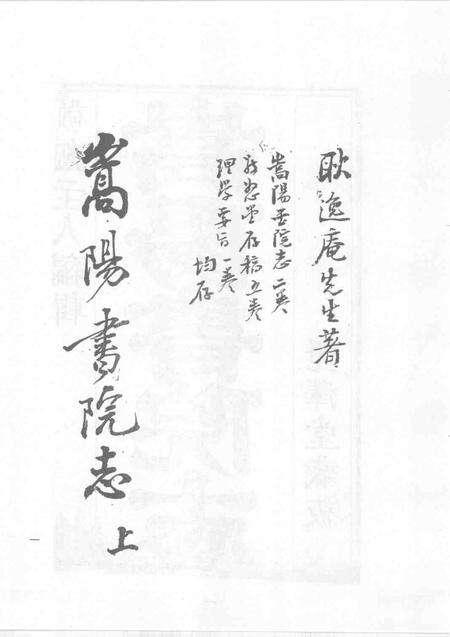 耿逸庵先生著
嵩陽書院志二卷
敬恕堂存稿五卷
理學要旨一卷
均存
嵩陽書院志 上